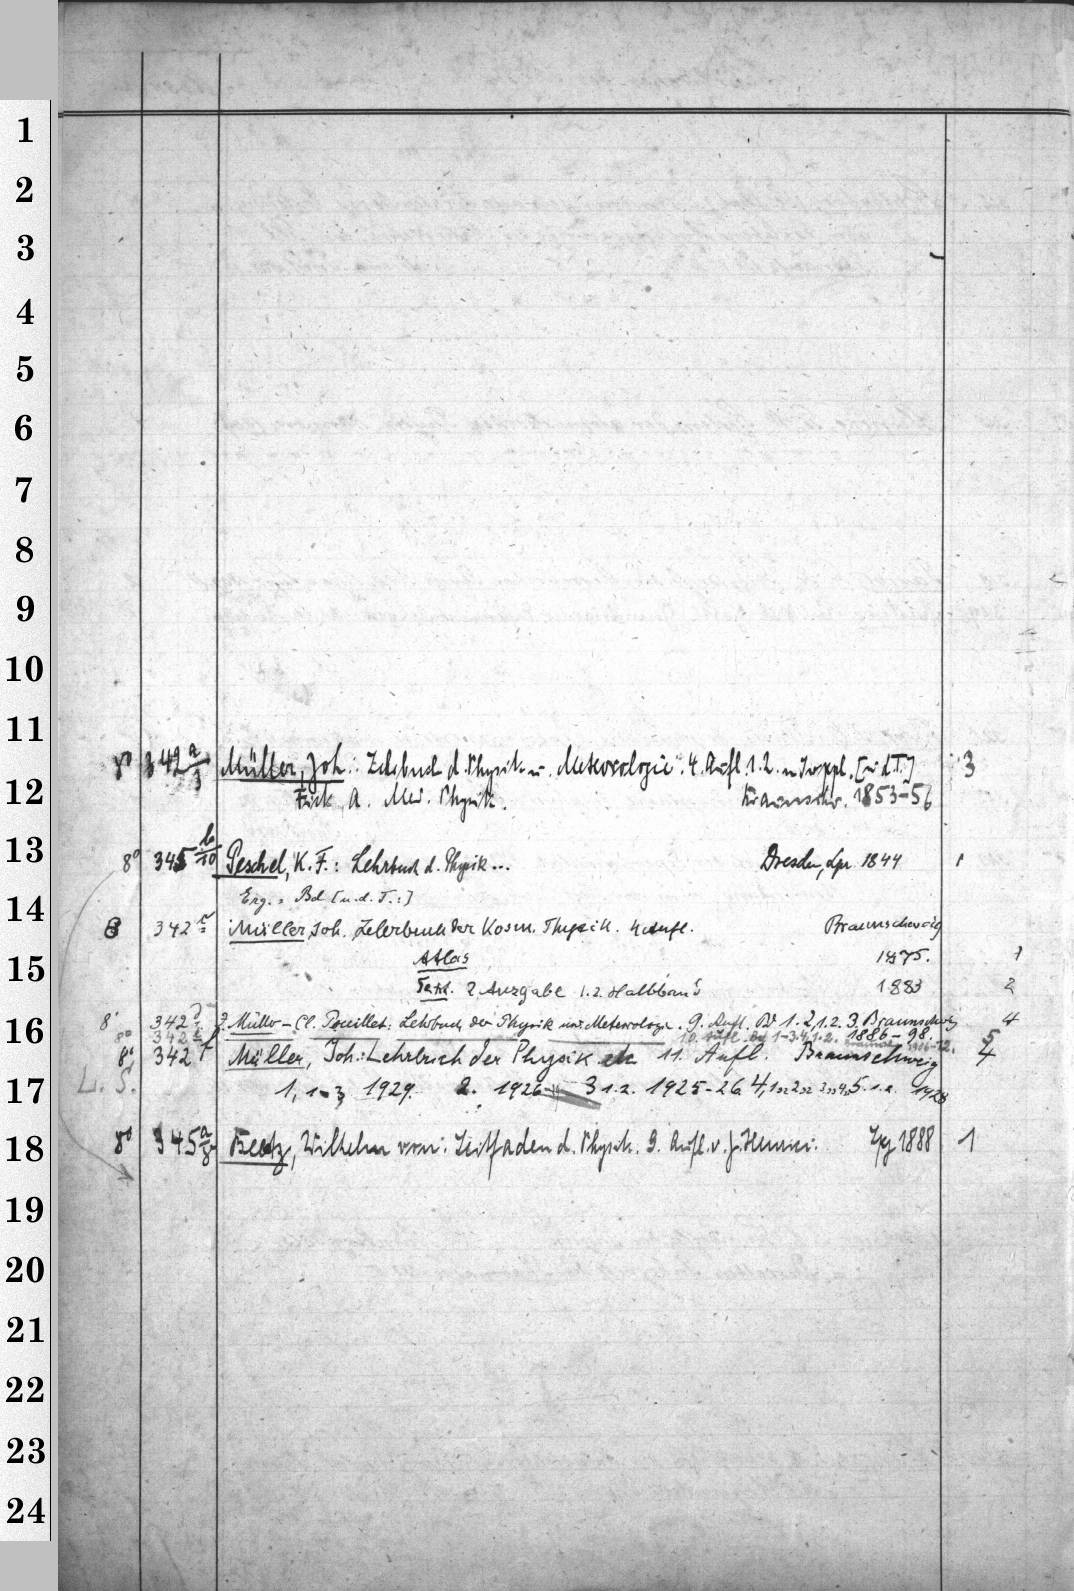 1
2
3
4
5
6
7
8
9
10
11
12
13
14
15
16
17
18
19
20
21
22
23
24
8° 342 a/3 Müller, Joh.: Lehrbuch d. Physik u. Meteorologie. 4. Aufl. 1.2. u Suppl. [u.d.T.] 3
Fick, A. Med. Physik. Braunschw. 1853-56
8° 345 b/10 Peschel, K. F.: Lehrbuch d. Physik... Dresden, Lpz. 1844 1
Erg. Bd [u.d.T.:]
8 342 c Müller, Joh. Lehrbuch der Kosm. Physik. 4 Aufl. Braunschweig
Atlas 1875. 1
Text. 2 Ausgabe 1.2. Halbband 1883 2
8° 342 Müller-Cl. Pouillet: Lehrbuch der Physik und Meteorologie. 9. Aufl. Bd 1.2,1.2. 3. Braunschweig 4
8° 342 10. Aufl. Bd 1-3.4,1.2. 1886-98. 5
8° 342 f Müller, Joh.: Lehrbuch der Physik 11. Aufl. Braunschweig 4
1, 1-3 1929. 2. 1926 3 1.2. 1925-26 4, 5. 1.2. 1928
L. S.
8° 345 a/8 Beetz, Wilhelm von: Leitfaden d. Physik. 9. Aufl. v. J. Henrici. Lpz 1888 1